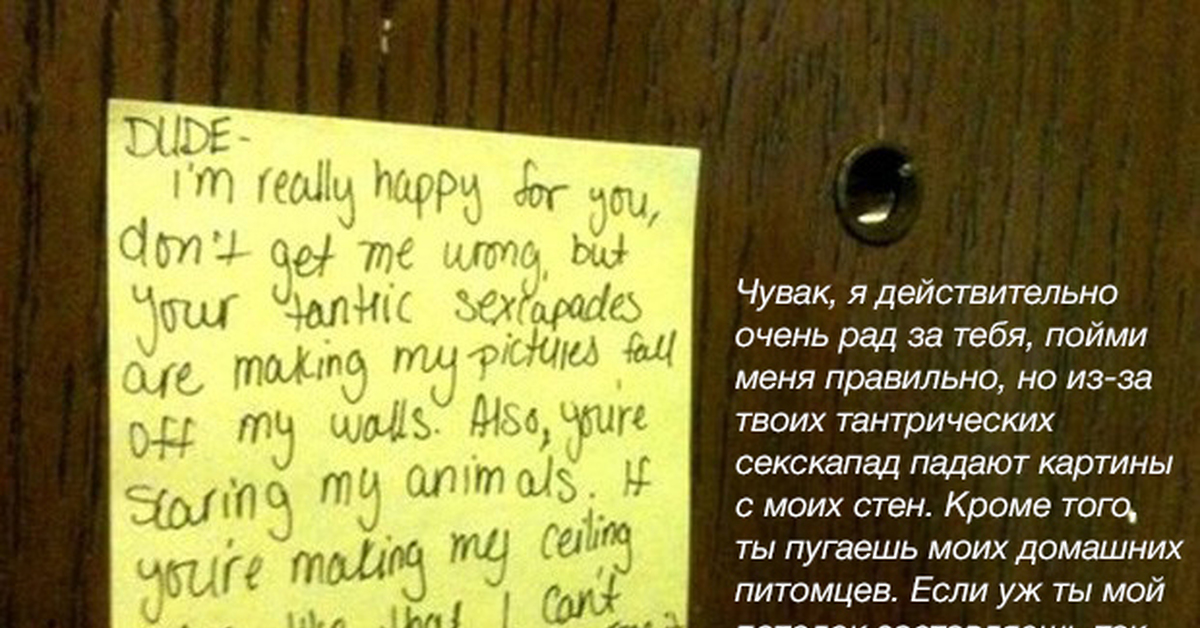 DUDE-
i'm really happy for you,
don't get me wrong, but
your tantric sexcapades
are making my pictures fall
off my walls. Also, you're
scaring my animals. If
you're making my ceiling
like that I can't
Чувак, я действительно
очень рад за тебя, пойми
меня правильно, но из-за
твоих тантрических
секскапад падают картины
с моих стен. Кроме того,
ты пугаешь моих домашних
питомцев. Если уж ты мой